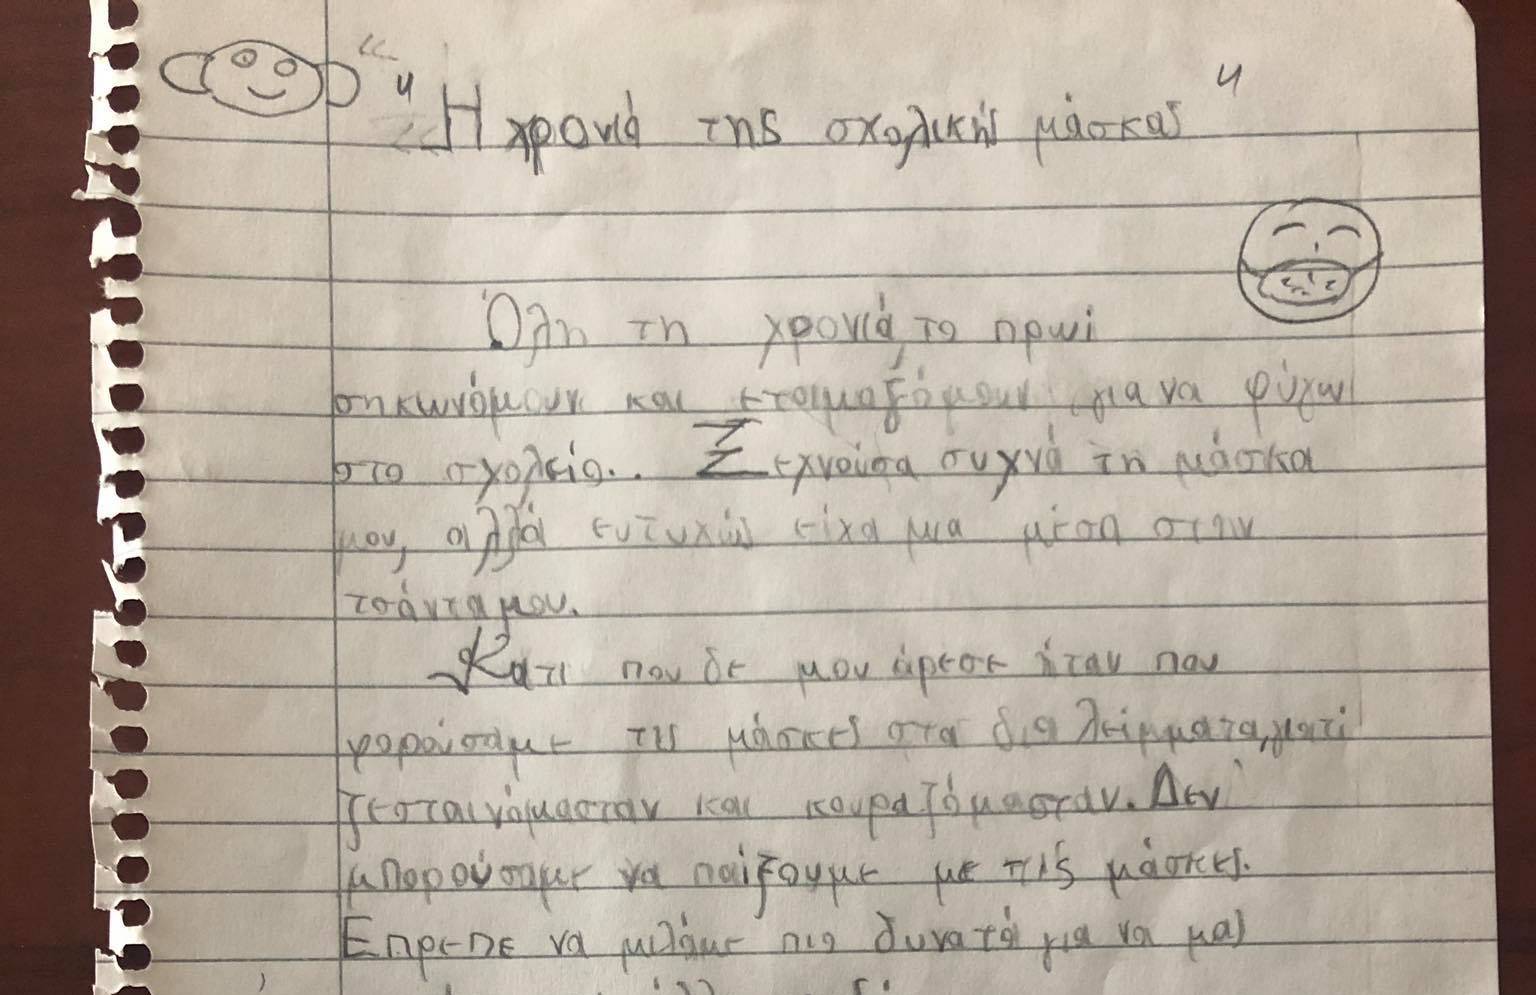 " Η χρονιά της σχολικής μάσκας "
Όλη τη χρονιά, το πρωί
σηκωνόμουν και ετοιμαζόμουν για να φύγω
στο σχολείο.. Ξεχνούσα συχνά τη μάσκα
μου, αλλά ευτυχώς είχα μια μέσα στην
τσάντα μου.
Κατι που δε μου άρεσε ήταν που
φορούσαμε τις μάσκες στα διαλείμματα, γιατί
ζεσταινόμασταν και κουραζόμασταν. Δεν
μπορούσαμε να παίξουμε με τις μάσκες.
Επρεπε να μιλάμε πιο δυνατά για να μας